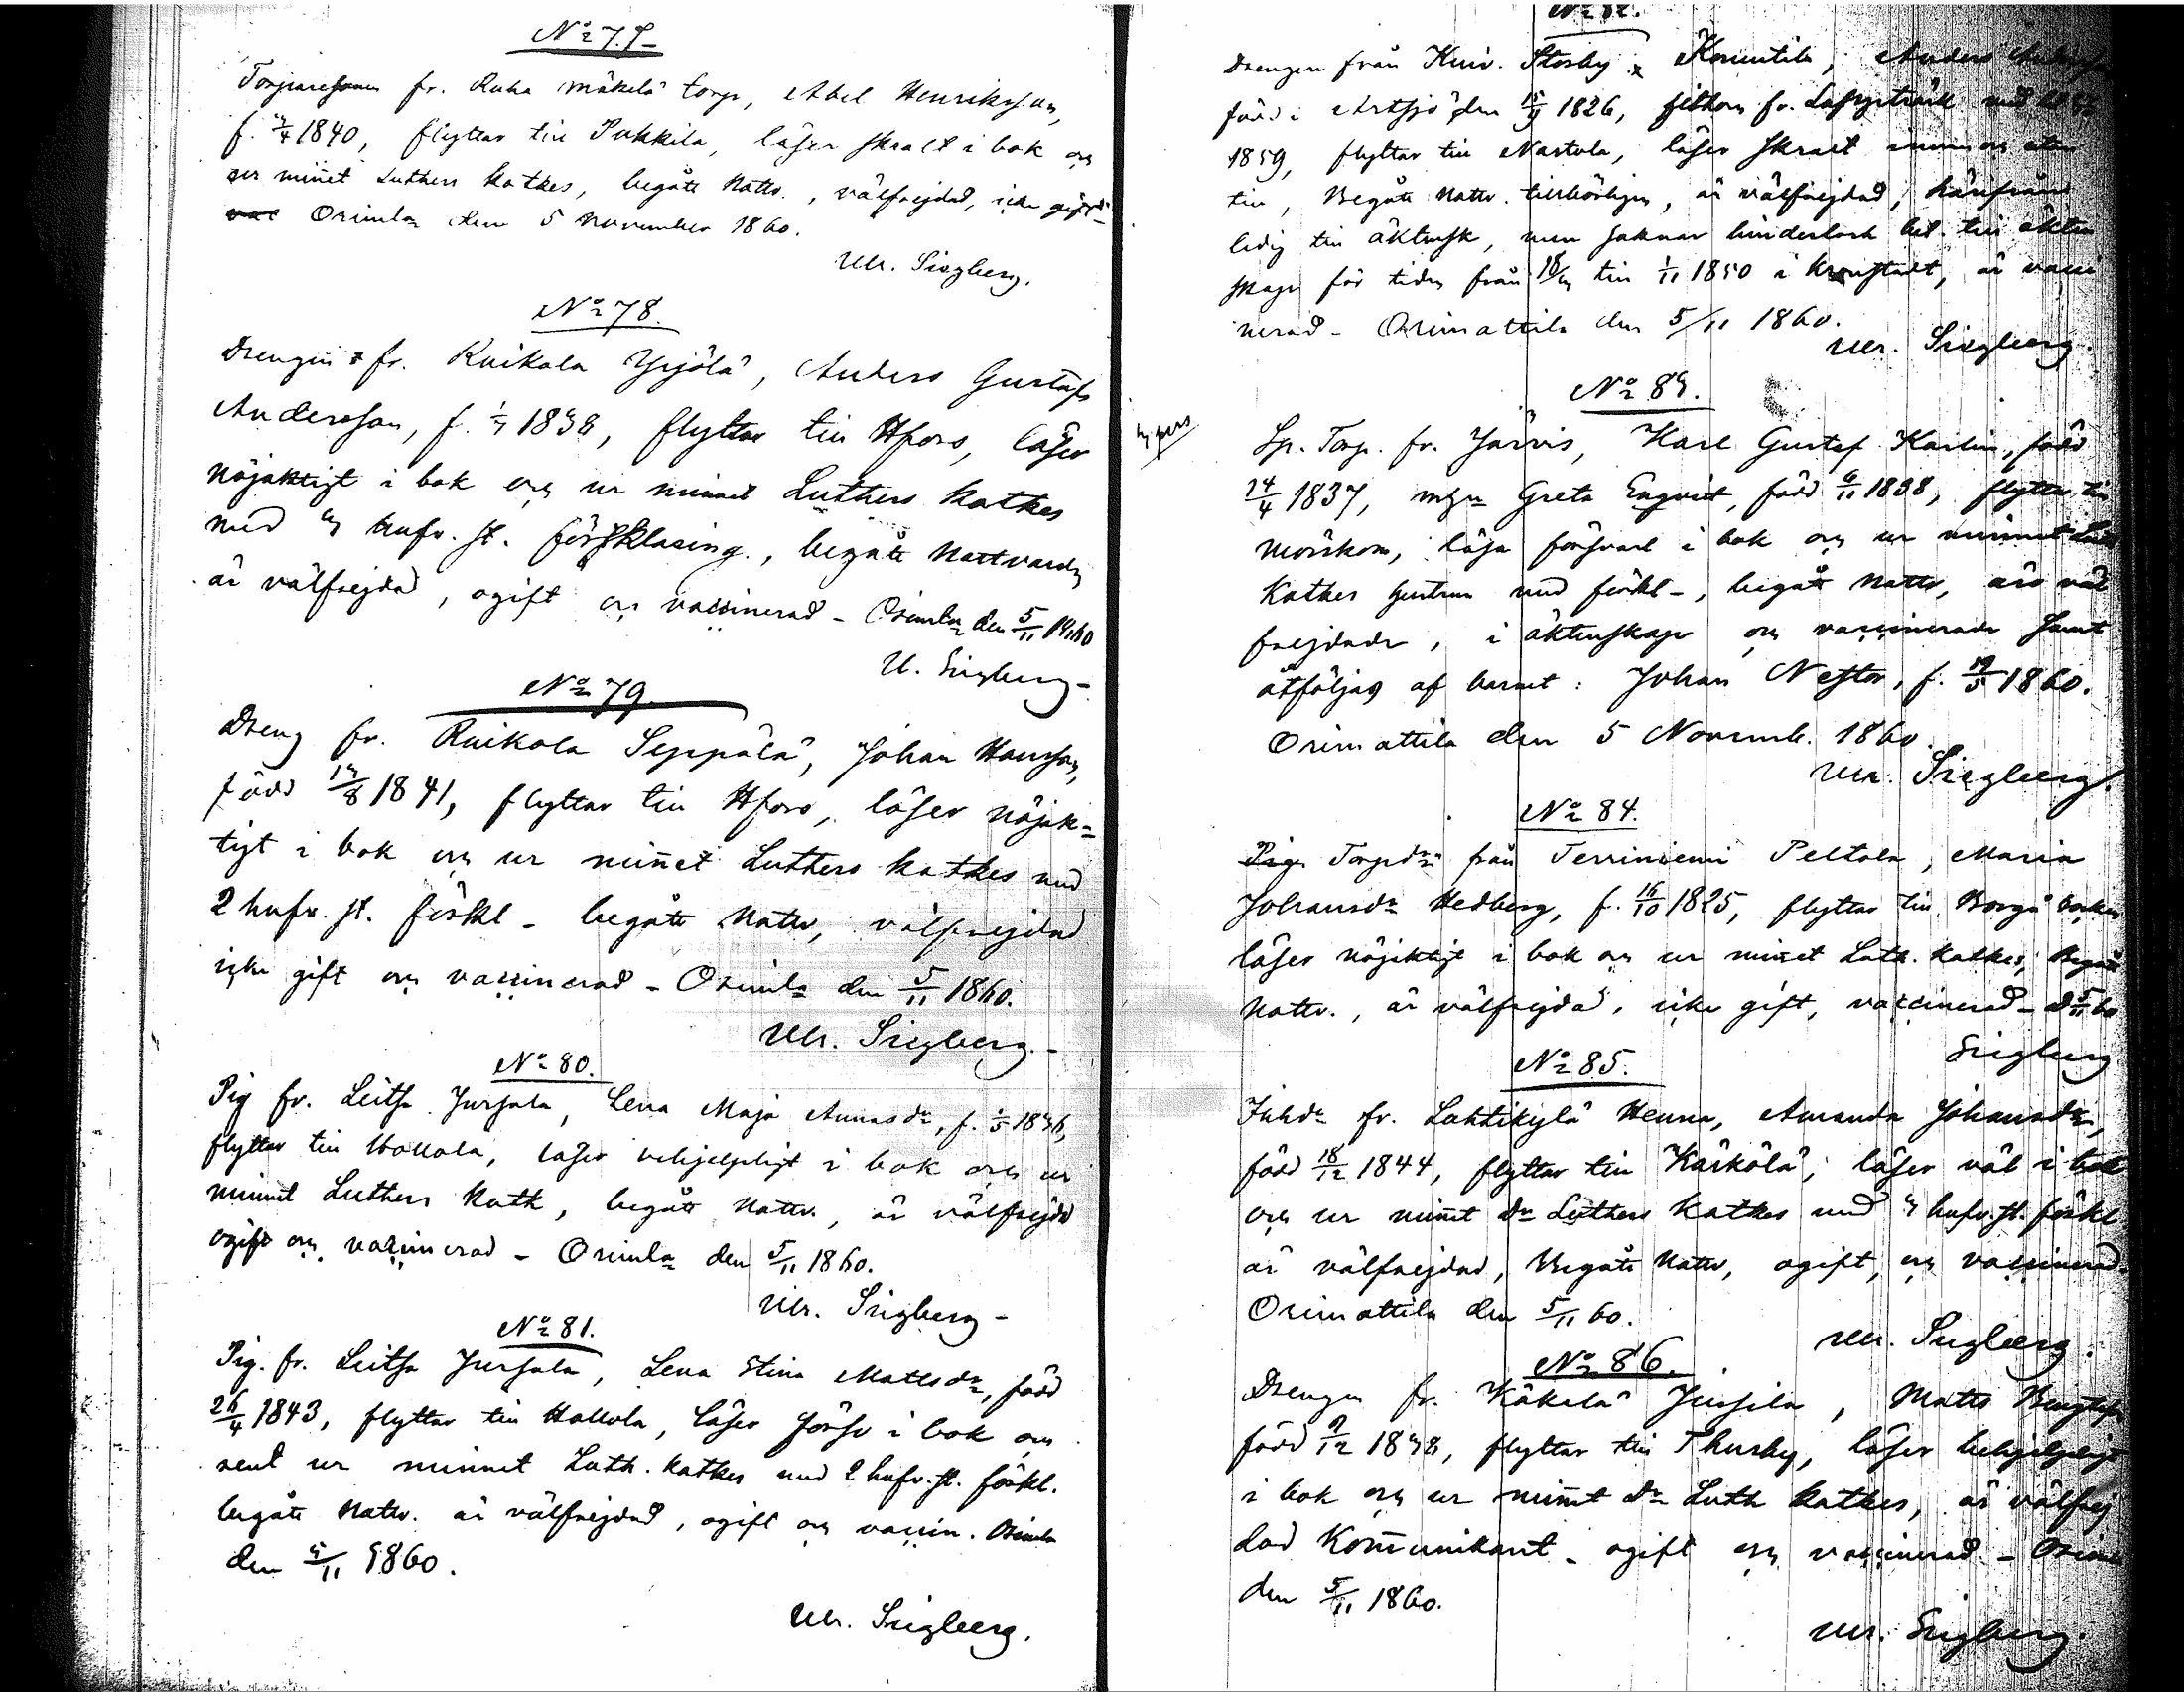 No 77
Torparesonen fr. Ruha Mäkelä torp, Abel Henriksson,
f. 1840, flyttar till Pukkila, läser skralt i bok och
ur minet Luthers katkes, begått nattv., välfrejdad, icke gift
Orimla den 5 November 1860.
Ulr. Siegberg.
No 78.
Drengen fr. Kuikala Yrjölä, Anders Gustaf
Andersson, f. 1838, flyttar till Hfors, läser
nöjaktigt i bok och ur minnet Luthers katkes
med hufv. st. förklaring., begått Nattvarden
är välfrejdad, ogift och vaccinerad - Orimla den 5/11 1860
U. Siegberg
No 79.
Dreng fr. Kuikala Seppälä, Johan Hansson,
född 1841, flyttar till Hfors, läser nöjak=
tigt i bok och ur minet Luthers katkes med
2 hufv. st. förkl - begått Nattv, välfrejdad
icke gift och vaccinerad - Orimla den 5/11 1860.
Ulr. Siegberg -
No 80.
Pig fr. Leitsa Jussala, Lena Maja Annasdr, f.
flyttar till Hollola, läser behjelpligt i bok och ur
minnet Luthers kath, begått Nattv., är välfrejdd
ogift och vaccinerad - Orimla den 5/11 1860.
Ulr. Siegberg -
No 81.
Pig. fr. Leitsa Jussala, Lena Stina Mattsdr, född
26/4 1843, flyttar till Hollola, läser försv i bok och
ur minnet Luth. katkes med 2 hufv. st. förkl.
begått Nattv. är välfrejdad, ogift och vaccin. Orimla
den 5/11 1860.
Ulr. Siegberg.
No 82.
Drengen från Kuiv. Storby Konntila, Anders
född i Artsjö den 15/9 1826, fr. Lapptrask
1859, flyttar till Nastola, läser skralt
till, Begått Nattv. tillbörligen, är välfrejdad, härifrån
ledig till äktensk, men saknar hinderlösh bet. till äkten
skap för tiden från till 1/11 1850 i Kronstadt, är vacci
nerad - Orimattila den 5/11 1860.
Ulr. Siegberg.
No 83.
Sp. Torp. fr. Järvis, Karl Gustaf Karlin, född
24/4 1837, Greta Enqvist, född 6/11 1838, flytta till
Mörskom, läsa försvarl i bok och ur minnet Luth
Katkes hustrun med förkl -, begått Nattv, äro väl
frejdade, i äktenskap och vaccinerade samt
åtföljas af barnet: Johan Nestor, f. 19/5 1860.
Orimattila den 5 Novemb. 1860.
Ulr. Siegberg.
No 84.
Torpdr från Terriniemi Peltola, Maria
Johansdr Hedberg, f. 16/10 1825, flyttar till Borgå
läser nöjaktigt i bok och ur minet Luth. katkes, Begått
Nattv., är välfrejdad, icke gift, vaccinerad - D 5/11 60
Siegberg
No 85.
Inhdr fr. Lahtikylä Henna, Amanda Johansdr,
född 18/12 1844, flyttar till Kärkölä, läser väl i bok
och ur minnet Dr Luthers katkes med hufv. st. förkl
är välfrejdad, Begått Nattv, ogift, och vaccinerad -
Orimattila den 5/11 60.
Ulr. Siegberg.
No 86.
Drengen fr. Käkelä Jussila, Matts Bengtsson
född flyttar till Thusby, läser behjelpligt
i bok och ur minnet Dr Luth katkes, är välfrej
dad Kommunikant - ogift och vaccinerad -
den 5/11 1860.
Ulr. Siegberg.